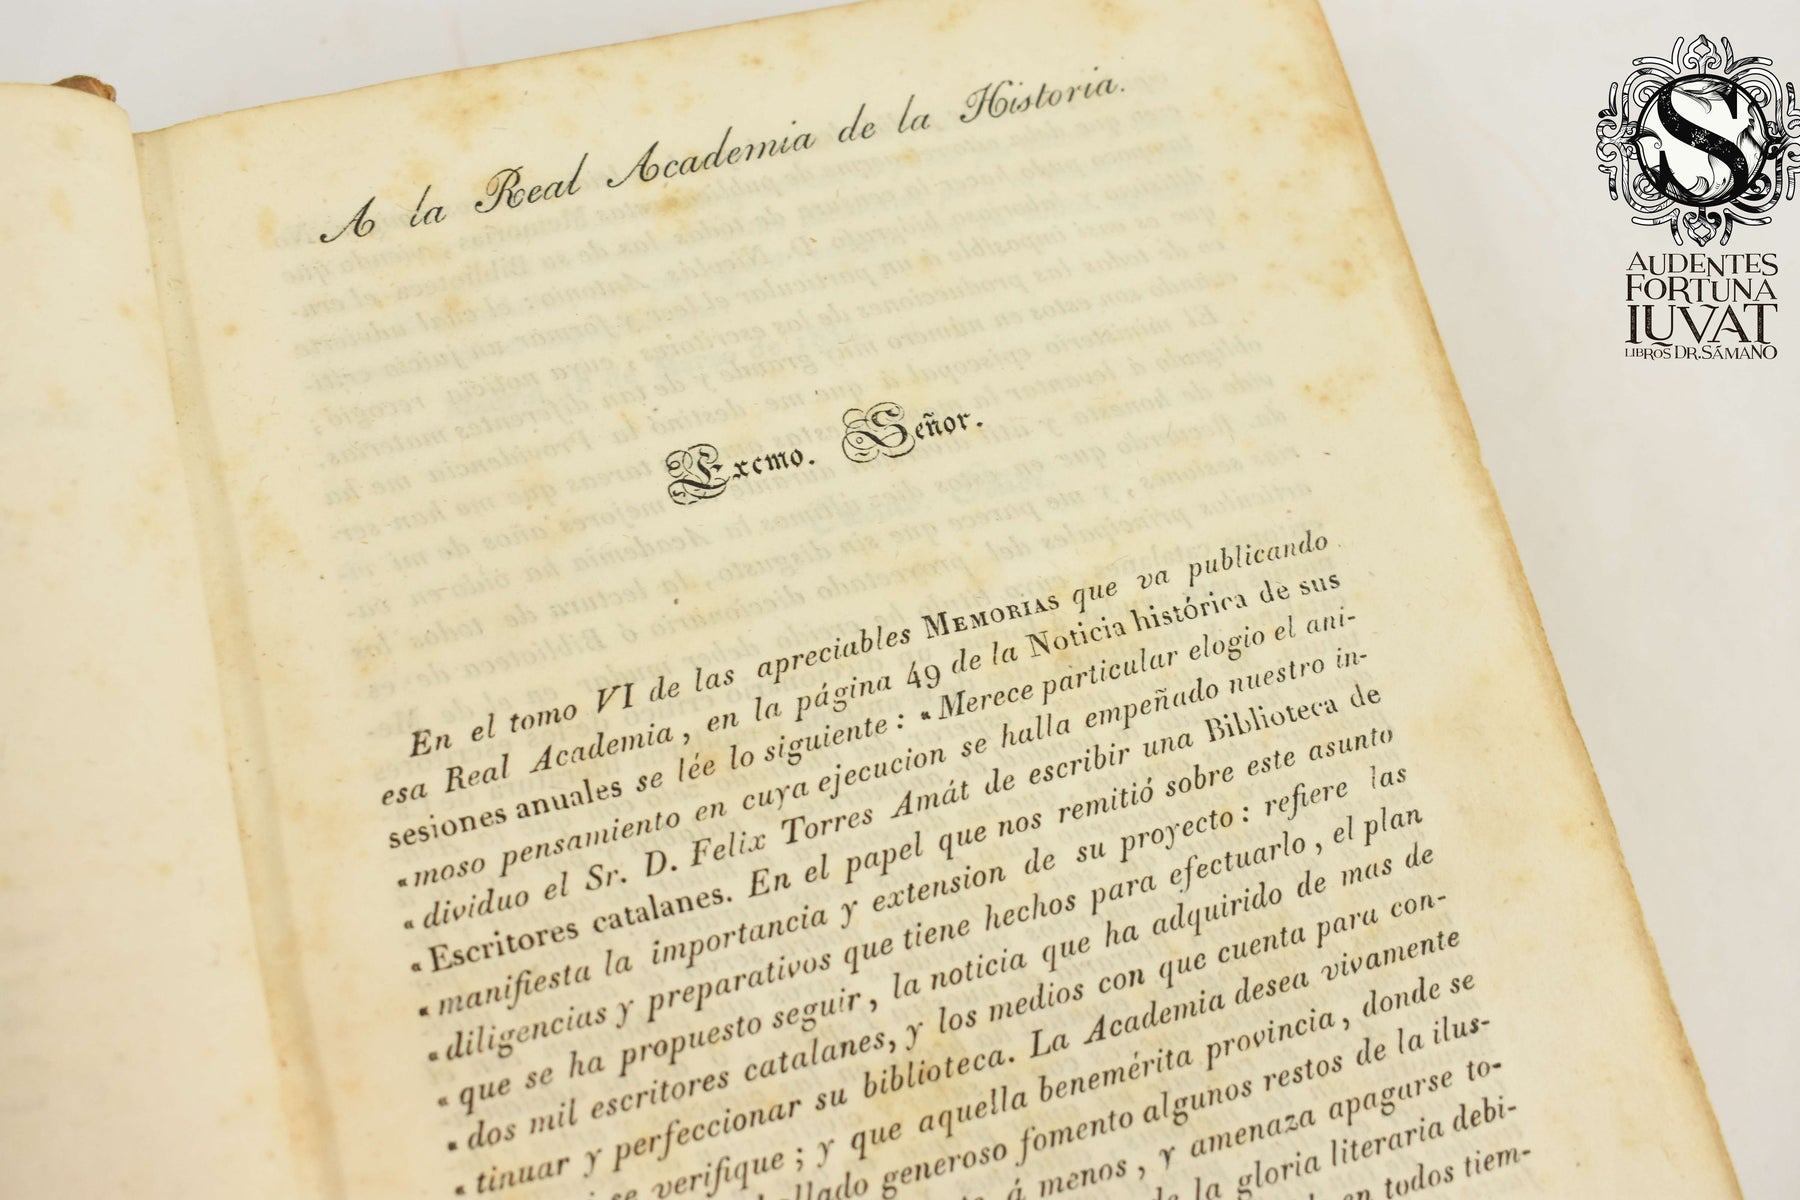 A la Real Academia de la Historia.
Excmo. Señor.
En el tomo VI de las apreciables MEMORIAS que va publicando
esa Real Academia, en la página 49 de la Noticia histórica de sus
sesiones anuales se lée lo siguiente: «Merece particular elogio el ani-
«moso pensamiento en cuya ejecucion se halla empeñado nuestro in-
«dividuo el Sr. D. Felix Torres Amát de escribir una Biblioteca de
«Escritores catalanes. En el papel que nos remitió sobre este asunto
«manifiesta la importancia y extension de su proyecto: refiere las
«diligencias y preparativos que tiene hechos para efectuarlo, el plan
«que se ha propuesto seguir, la noticia que ha adquirido de mas de
«dos mil escritores catalanes, y los medios con que cuenta para con-
«tinuar y perfeccionar su biblioteca. La Academia desea vivamente
se verifique; y que aquella benemérita provincia, donde se
generoso fomento algunos restos de la ilus-
á menos, y amenaza apagarse to-
la gloria literaria debi-
en todos tiem-
S
AUDENTES
FORTUNA
IUVAT
LIBROS DR. SÁMANO